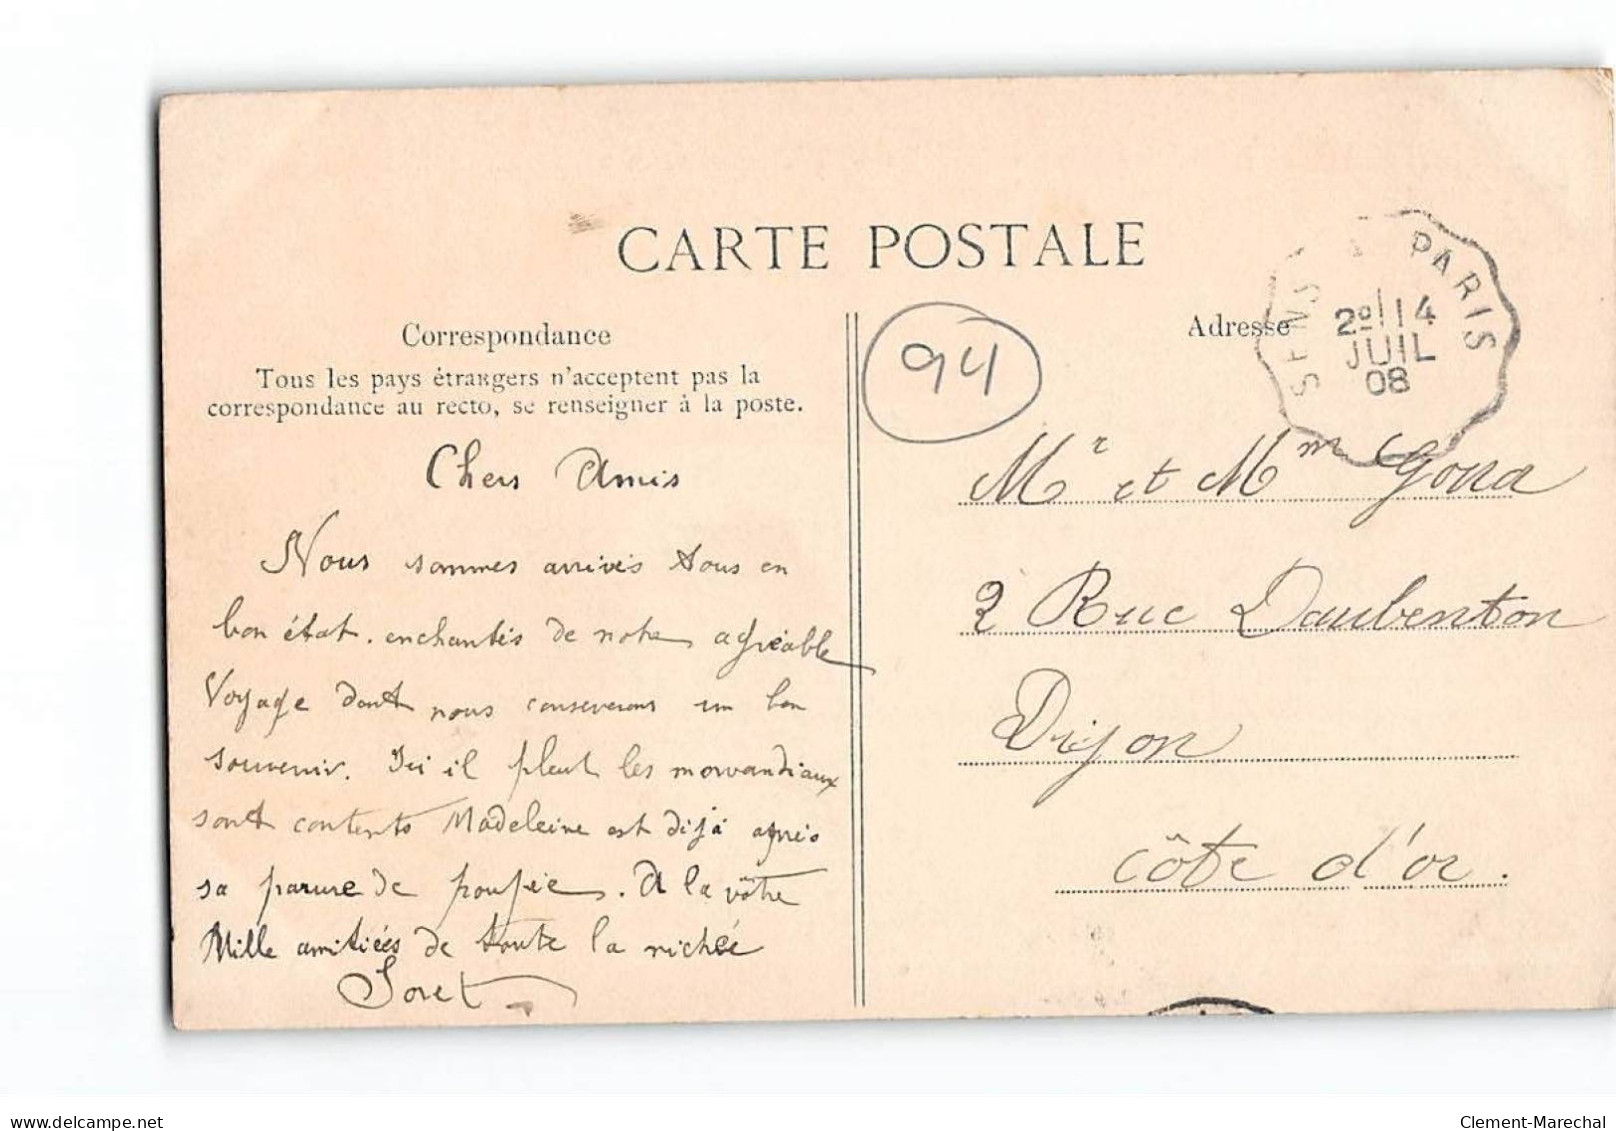 CARTE POSTALE
Correspondance
Tous les pays étrangers n'acceptent pas la
correspondance au recto, se renseigner à la poste.
Chers Amis
Nous sommes arrivés tous en
bon état. enchantés de notre agréable
Voyage dont nous conserverons un bon
souvenir. Ici il pleut les morvandiaux
sont contents Madeleine est déjà après
sa parure de poupée. A la vôtre
Mille amitiées de toute la nichée
Soret
94
Adresse
SENS A PARIS
2º 14
JUIL
08
Mr et Mm
2 Rue Daubenton
Dijon
côte d'or.
delcampe.net
Clement-Marechal